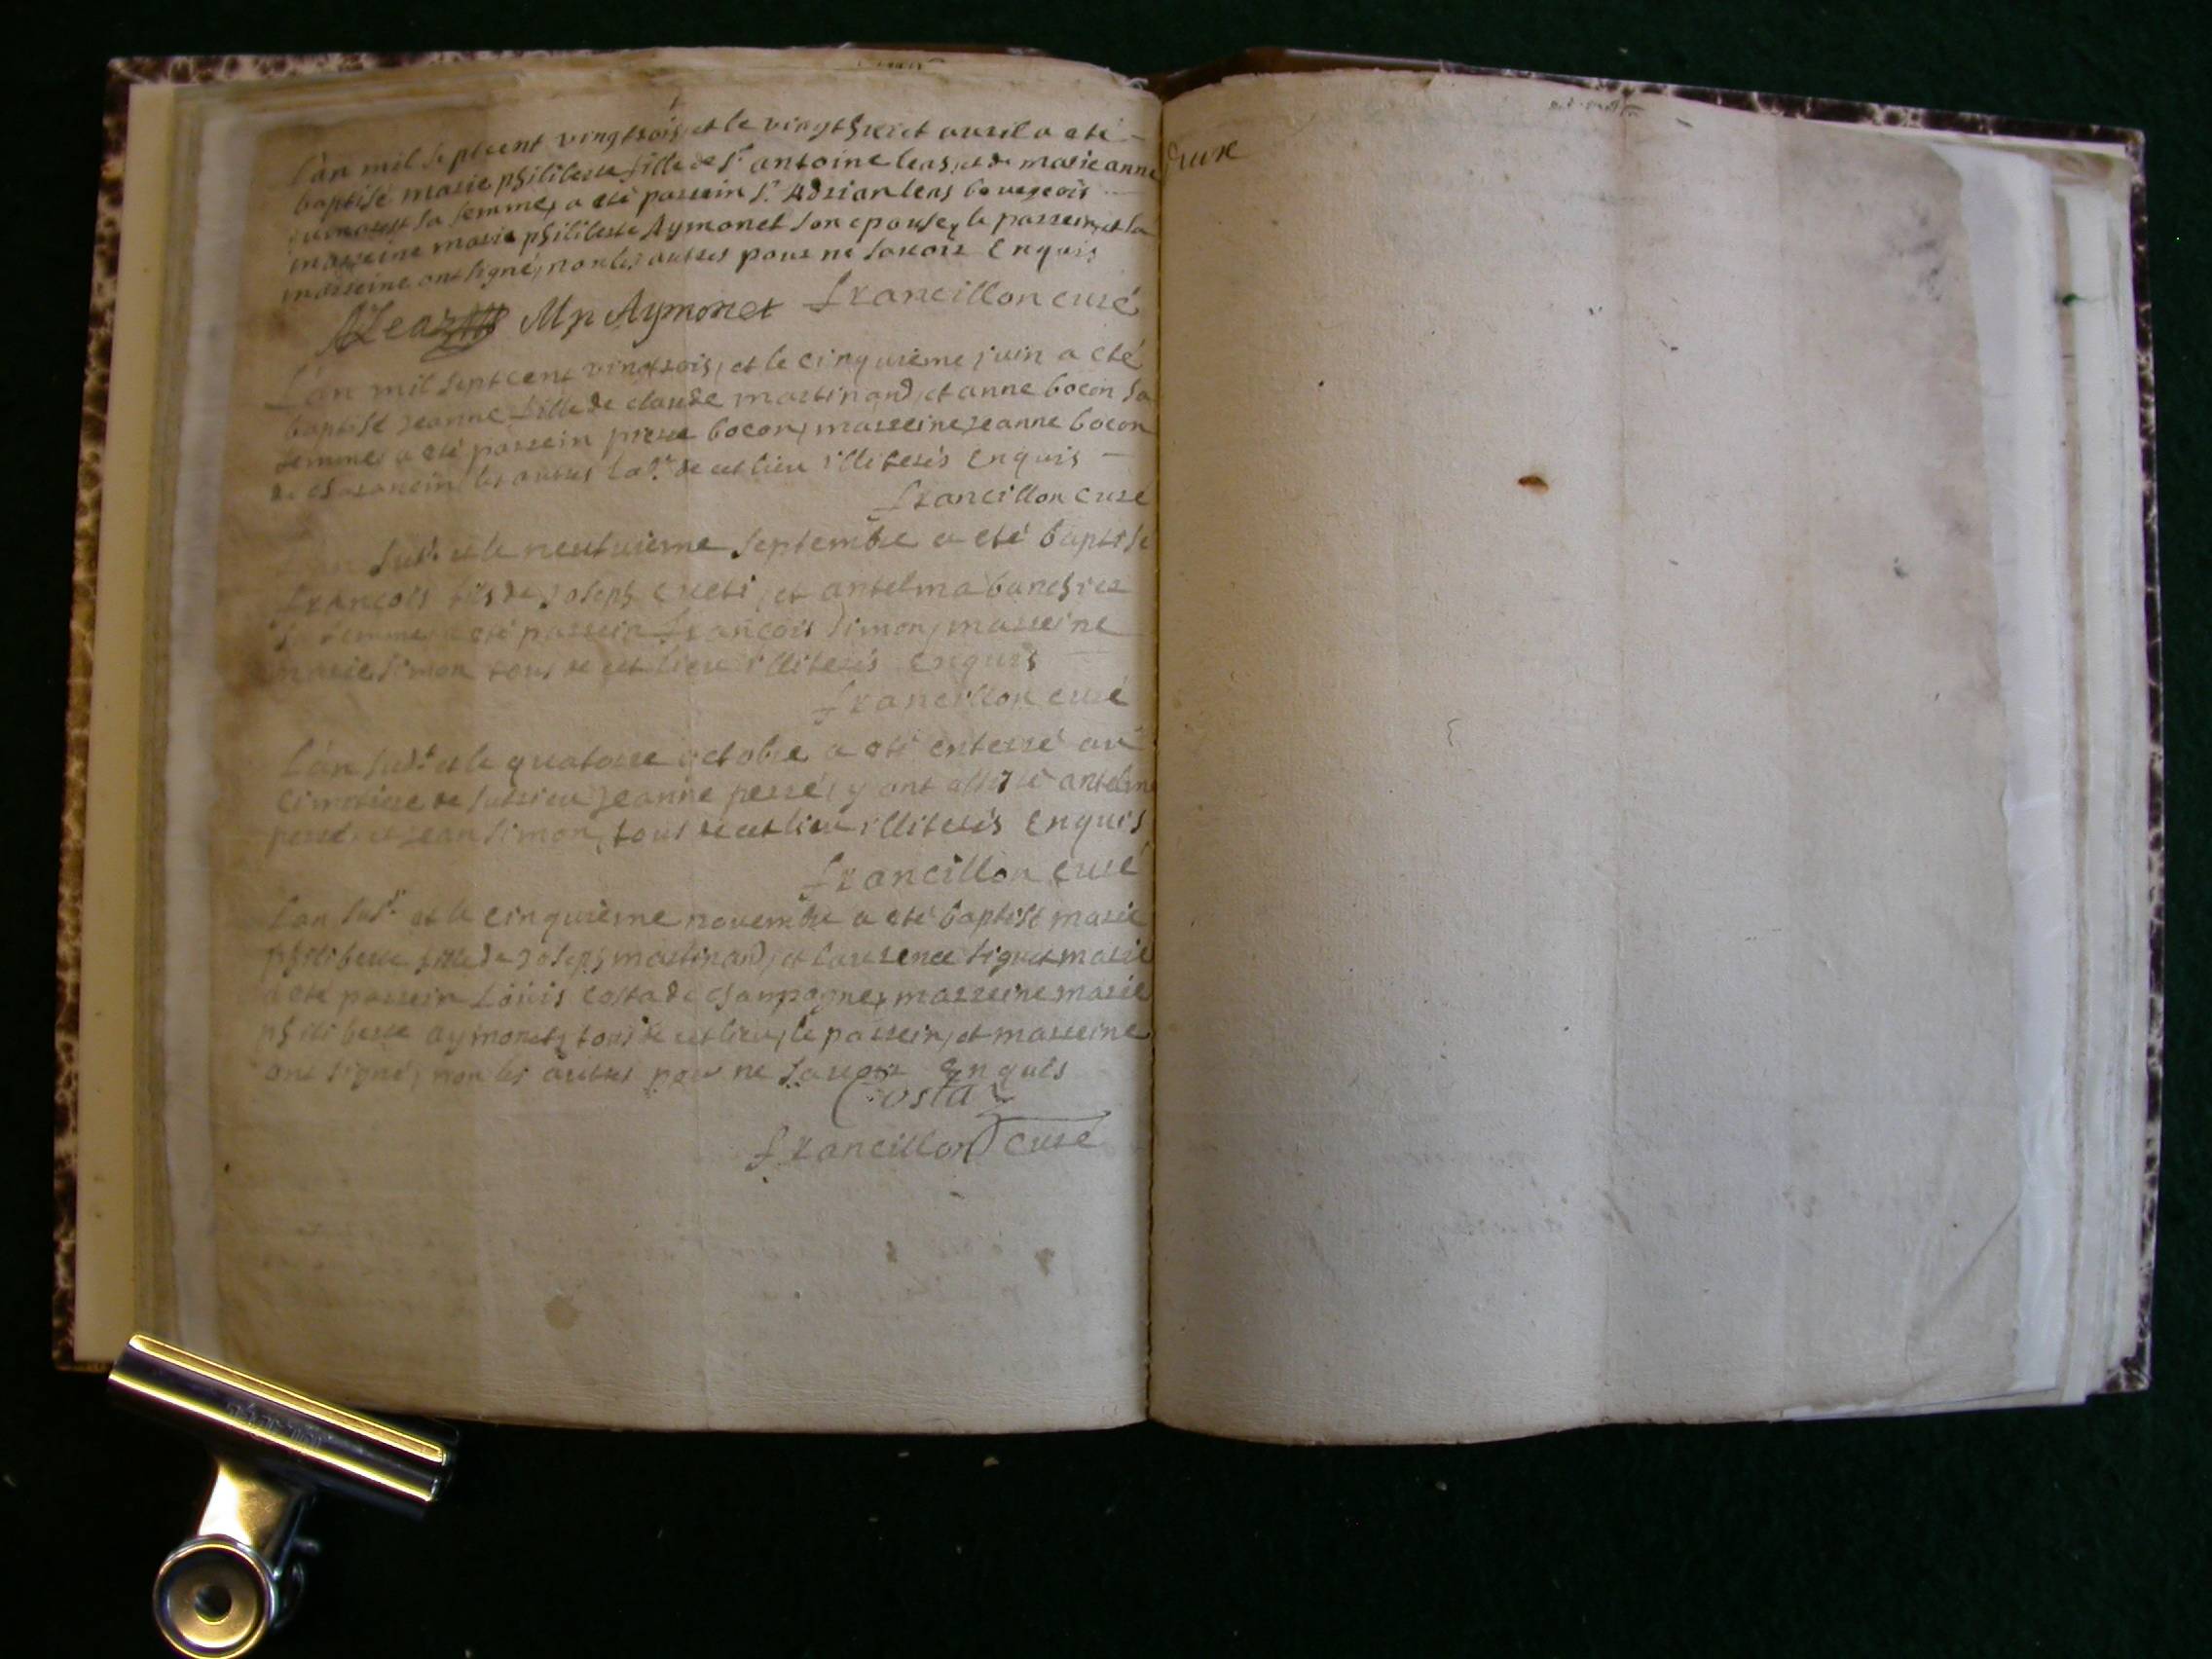 L'an mil septcent vingtrois, et le vingthuict auril a eté
baptisé marie philiberte fille de Sr. antoine leas, et de marie anne
sa femme, a eté parrein Sr. Adrian leas bourgeois
marreine marie philiberte Aymonet son epouse, le parrein, et la
marreine ont signé, non les autres pour ne savoir Enquis
ALeas Mp Aymonet francillon curé
L'an mil septcent vingtrois, et le cinquieme juin a eté
baptisé jeanne fille de claude martinand, et anne bocon sa
femme, a eté parrein pierre bocon, marreine jeanne bocon
de les autres de cet lieu illiterés Enquis
francillon curé
L'an susd. et le neufuieme septembre a eté baptisé
francois fils de joseph creti, et antelma
sa femme, a eté parrein francois simon, marreine
marie simon tous de cet lieu illiterés Enquis
francillon curé
L'an susd.t et le quatorze octobre a eté enterré au
cimetiere de jeanne perré, y ont assisté antelme
perré, et jean simon, tous de cet lieu illiterés Enquis
francillon curé
L'an susd. et le cinquieme novembre a eté baptisé marie
philiberte fille de joseph martinand, et laurence
a eté parrein Loüis costa de champagne, marreine marie
philiberte aymonet, tous de cet lieu, le parrein, et marreine
ont signé, non les autres pour ne savoir Enquis
Costaz
francillon curé